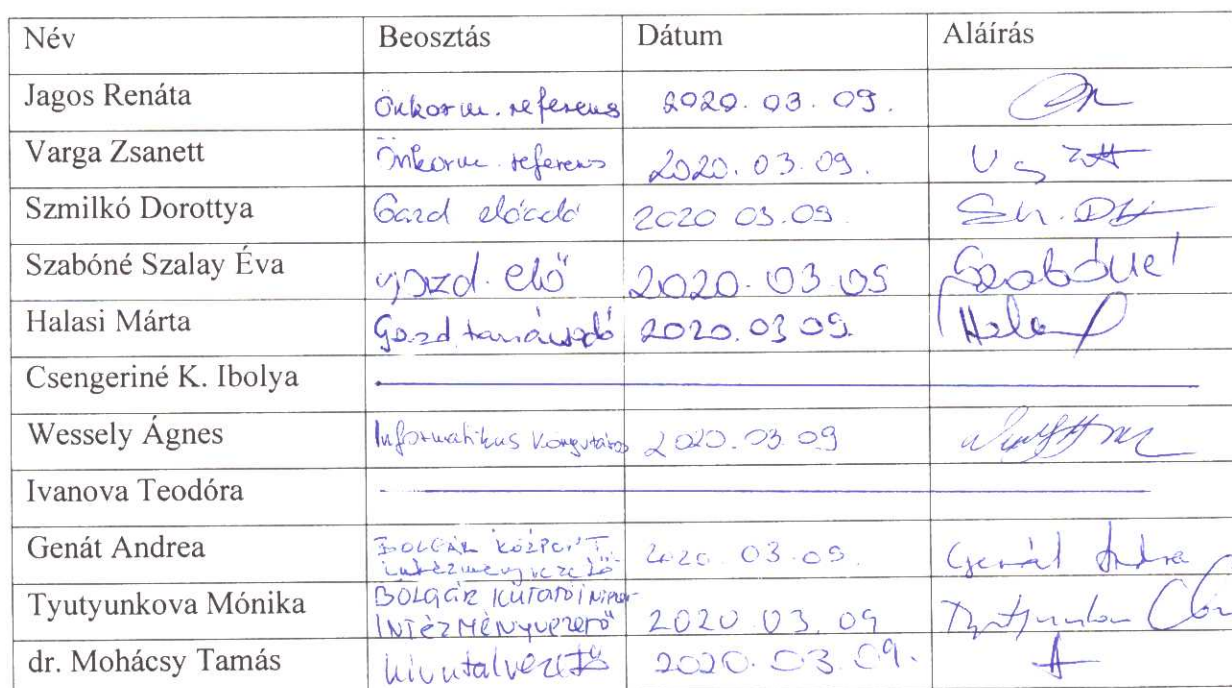 Név Beosztás Dátum Aláírás
Jagos Renáta Önkorm. referens 2020. 03. 09.
Varga Zsanett Önkorm. referens 2020. 03. 09.
Szmilkó Dorottya Gazd előadó 2020 03.09.
Szabóné Szalay Éva gazd. elő 2020. 03 09 Szabóné
Halasi Márta Gazd tanácsadó 2020. 03 09.
Csengeriné K. Ibolya
Wessely Ágnes Informatikus Könyvtáros 2020. 03 09
Ivanova Teodóra
Genát Andrea BOLGÁR KÖZPONT 2020. 03. 09. Genát Andrea
intézményvezető
Tyutyunkova Mónika BOLGÁR KUTATÓ 2020 03. 09
INTÉZMÉNYVEZETŐ
dr. Mohácsy Tamás hivatalvezető 2020. 03. 09.